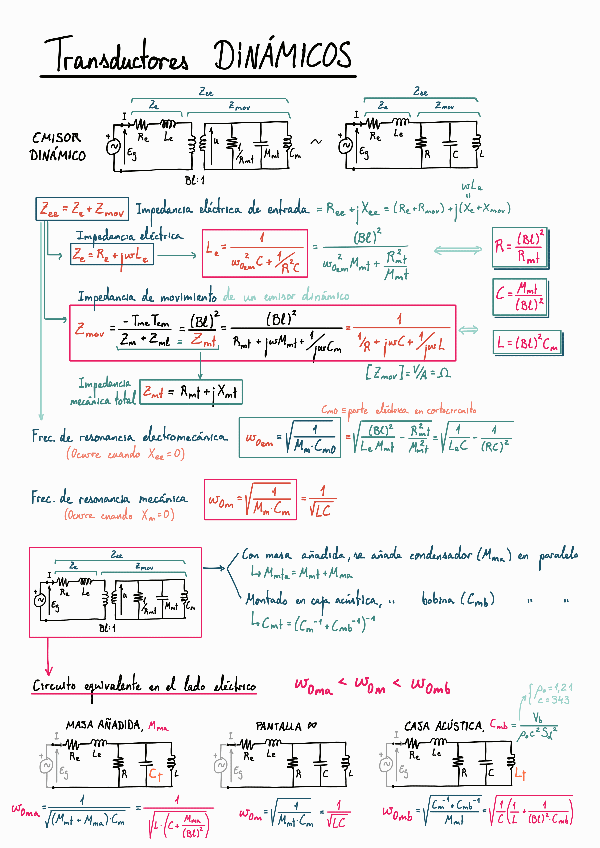 Transductores DINÁMICOS
Zee
Ze Zmov
I Re Le
Eg u 1/Rmt Mmt Cm
Bl:1
EMISOR DINÁMICO
~
Zee
Ze Zmov
I Re Le
Eg R C L
Zee = Ze + Zmov Impedancia eléctrica de entrada = Ree + jXee = (Re + Rmov) + j(Xe + Xmov)
wLe
=
Impedancia eléctrica
Ze = Re + jwLe
Le = 1 / (w²0em C + 1/(R²C)) = (Bl)² / (w²0em Mmt + R²mt/Mmt)
R = (Bl)²/Rmt
C = Mmt/(Bl)²
L = (Bl)² Cm
Impedancia de movimiento de un emisor dinámico
Zmov = -Tme Tem / (Zm + Zml) = (Bl)²/Zmt = (Bl)² / (Rmt + jwMmt + 1/jwCm) = 1 / (1/R + jwC + 1/jwL)
[Zmov] = V/A = Ω
Impedancia mecánica total
Zmt = Rmt + jXmt
Cmo ≡ parte eléctrica en cortocircuito
Frec. de resonancia electromecánica
(Ocurre cuando Xee = 0)
w0em = √(1/(Mm·Cmo)) = √((Bl)²/(Le Mmt) - R²mt/M²mt) = √(1/(LeC) - 1/(RC)²)
Frec. de resonancia mecánica
(Ocurre cuando Xm = 0)
w0m = √(1/(Mm·Cm)) = 1/√LC
Zee
Ze Zmov
I Re Le
Eg u 1/Rmt Mmt Cm
Bl:1
Con masa añadida, se añade condensador (Mma) en paralelo
↳ Mmta = Mmt + Mma
Montado en caja acústica, " bobina (Cmb) " "
↳ Cmt = (Cm⁻¹ + Cmb⁻¹)⁻¹
Circuito equivalente en el lado eléctrico
w0ma < w0m < w0mb
ρo = 1,21
c = 343
MASA AÑADIDA, Mma
I Re Le
Eg R C↑ L
w0ma = 1/√((Mmt + Mma)·Cm) = 1/√(L·(C + Mma/(Bl)²))
PANTALLA ∞
I Re Le
Eg R C L
w0m = √(1/(Mmt·Cm)) = 1/√LC
CAJA ACÚSTICA, Cmb = Vb/(ρo c² Sd²)
I Re Le
Eg R C L↑
w0mb = √((Cm⁻¹ + Cmb⁻¹)/Mmt) = √(1/C (1/L + 1/((Bl)²·Cmb)))